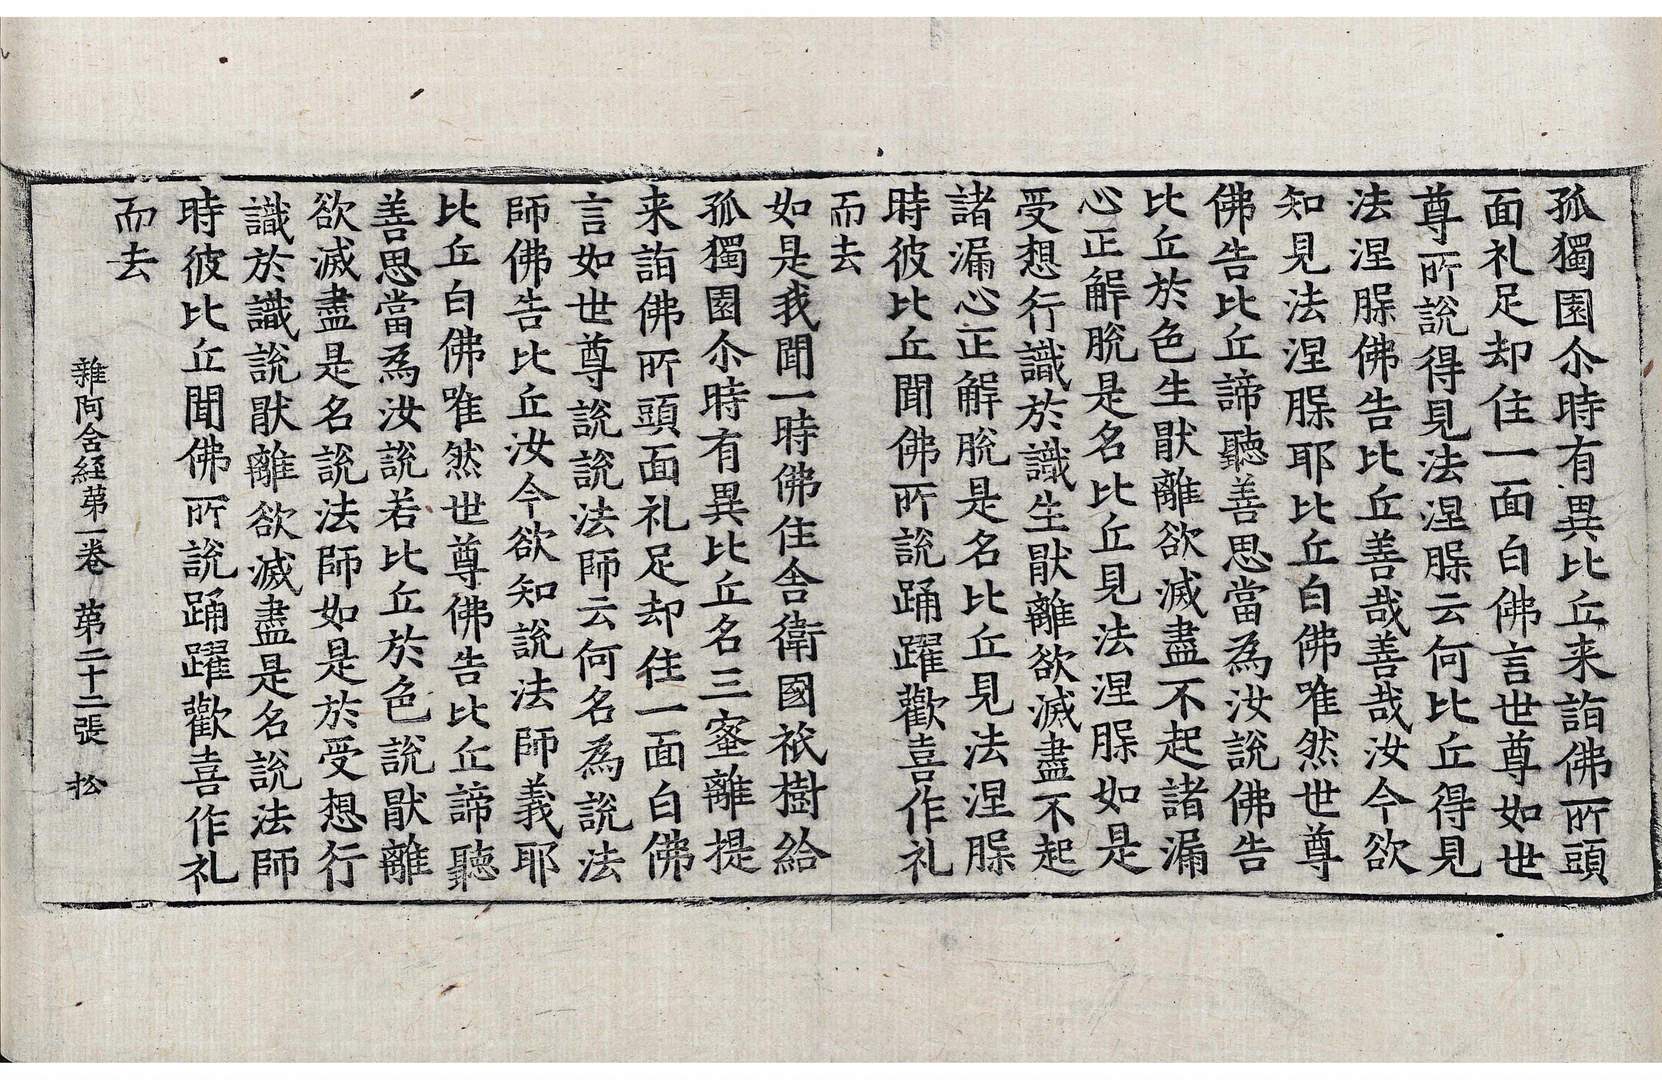 孤獨園尒時有異比丘来詣佛所頭
面礼足却住一面白佛言世尊如世
尊所說得見法涅槃云何比丘得見
法涅槃佛告比丘善哉善哉汝今欲
知見法涅槃耶比丘白佛唯然世尊
佛告比丘諦聽善思當為汝說佛告
比丘於色生猒離欲滅盡不起諸漏
心正解脫是名比丘見法涅槃如是
受想行識於識生猒離欲滅盡不起
諸漏心正解脫是名比丘見法涅槃
時彼比丘聞佛所說踊躍歡喜作礼
而去
如是我聞一時佛住舍衛國祇樹給
孤獨園尒時有異比丘名三蜜離提
来詣佛所頭面礼足却住一面白佛
言如世尊說說法師云何名為說法
師佛告比丘汝今欲知說法師義耶
比丘白佛唯然世尊佛告比丘諦聽
善思當為汝說若比丘於色說猒離
欲滅盡是名說法師如是於受想行
識於識說猒離欲滅盡是名說法師
時彼比丘聞佛所說踊躍歡喜作礼
而去
雜阿含経苐一卷 苐二十二張 松